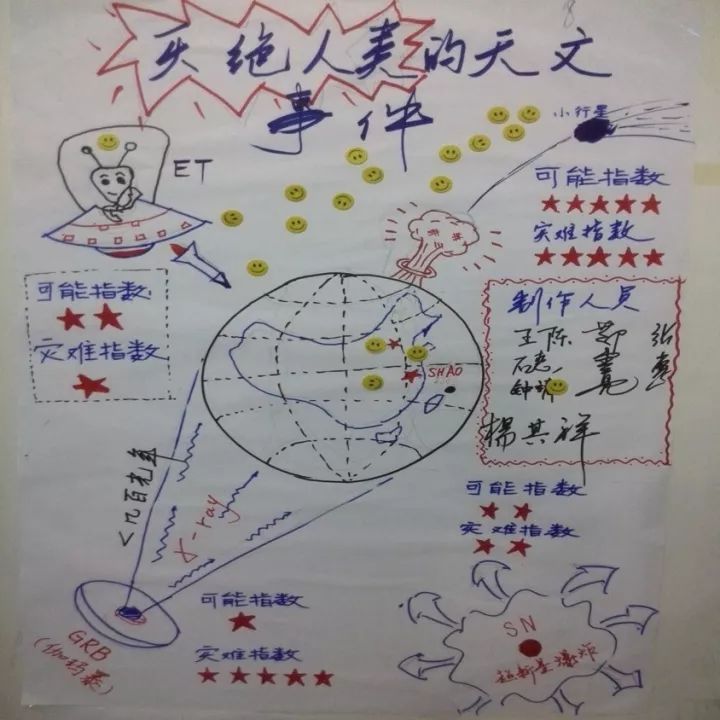 灭绝人类的天文
事件
小行星
ET
可能指数
灾难指数
可能指数
灾难指数
制作人员
王陈
杨其祥
SHAO
<几百光年
X-ray
可能指数
灾难指数
GRB
(伽玛暴)
可能指数
灾难指数
SN
超新星爆炸